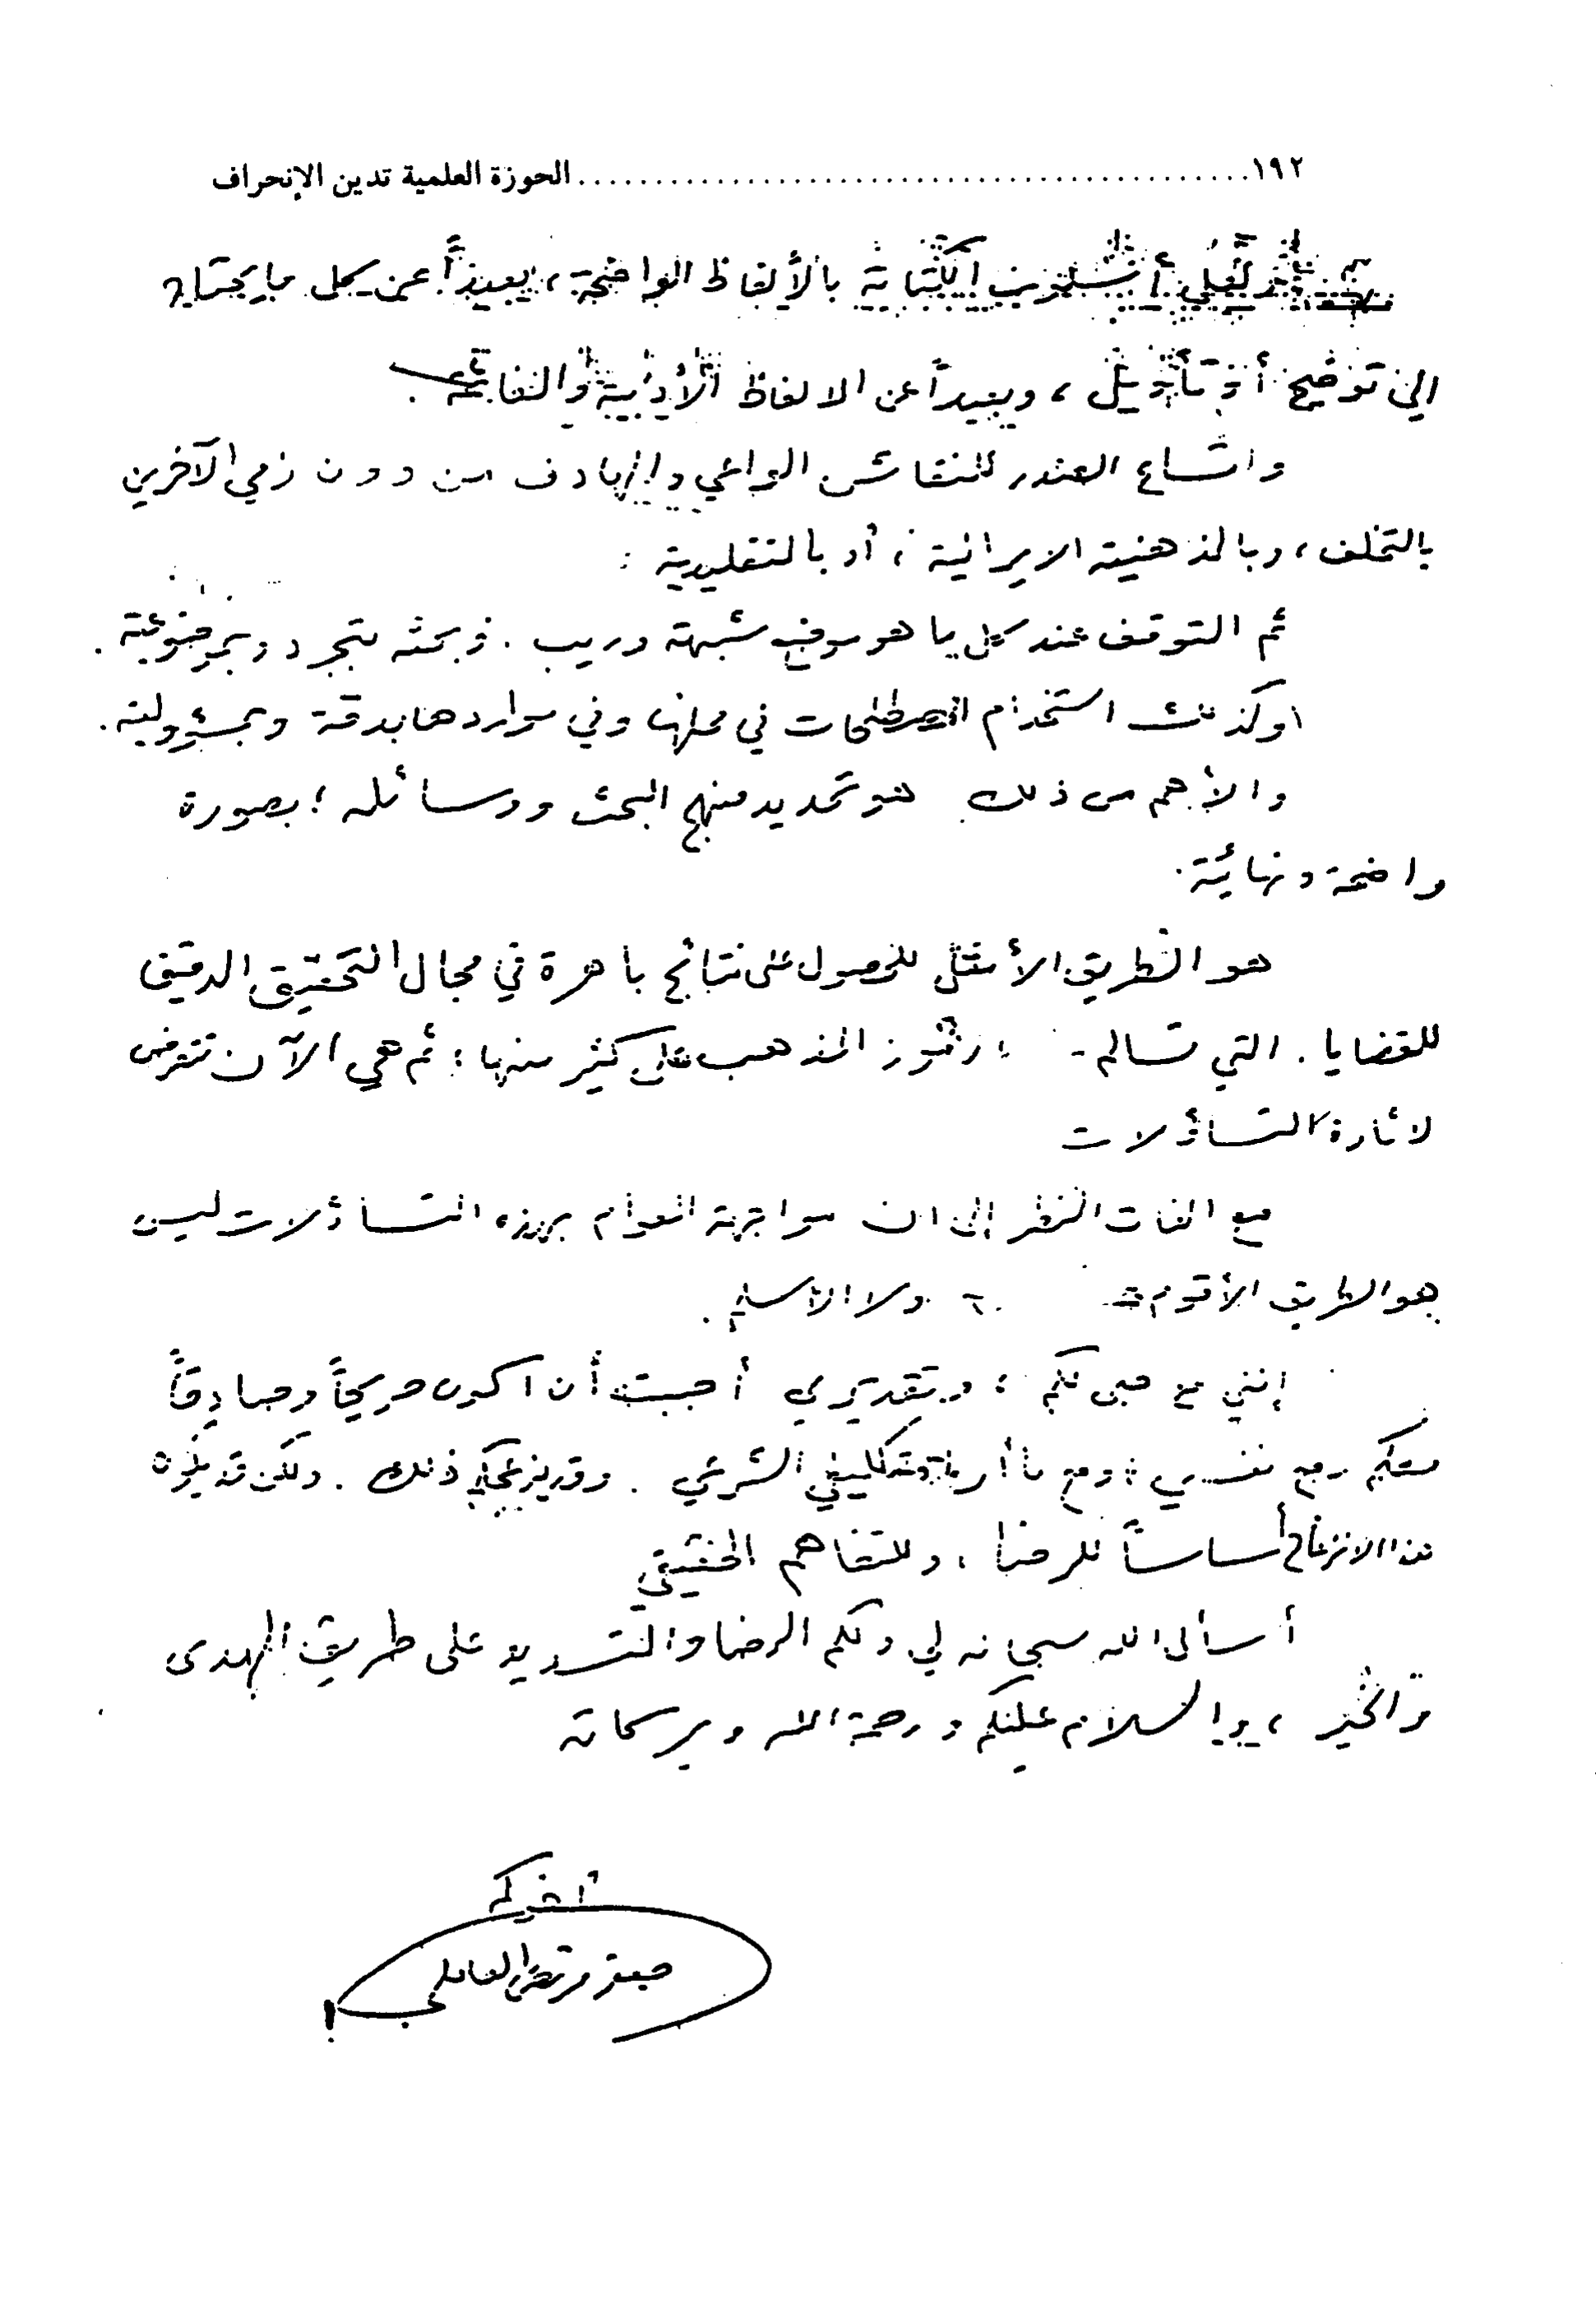 ١٩٢ ........................................ الحوزة العلمية تدين الإنحراف
ولعل أسلوب الكتابة بالألفاظ الواضحة، بعيداً عن كل ما يحتاج
الى توضيح أو تأويل، وبعيداً عن الالفاظ الأدبية والغائمة.
واتساع الصدر للنقاش الواعي والهادف من دون رمي الآخرين
بالتخلف، وبالذهنية الايرانية، أو بالتقليدية.
ثم التوقف عند كل ما هو موضع شبهة وريب. وبحثه بتجرد وبموضوعية.
وكذلك استخدام المصطلحات في محلها وفي مواردها بدقة وبمسؤولية.
والأهم من ذلك هو تحديد منهج البحث ووسائله؛ بصورة
واضحة ونهائية.
هو الطريق الأمثل للحصول على نتائج باهرة في مجال التحقيق الدقيق
للقضايا. التي تسالم رموز المذهب على كثير منها؛ ثم هي الآن تتعرض
لاثارة التساؤلات
مع الفات النظر إلى ان مواجهة العوام بهذه التساؤلات ليس
هو الطريق الأقوم ولا الأسلم.
إنني مع حبي لكم، وتقديري أحببت أن اكون صريحاً وصادقاً
معكم ومع نفسي، ومع ما أراه تكليفي الشرعي. وقد يزعجكم ذلك. ولكن قد يكون
هذا الانزعاج أساساً للرضا، وللتفاهم الحقيقي
أسأل الله سبحانه لي ولكم الرضا والتسديد على طريق الهدى
والخير، والسلام عليكم ورحمة الله وبركاته
أخوكم
جعفر مرتضى العاملي